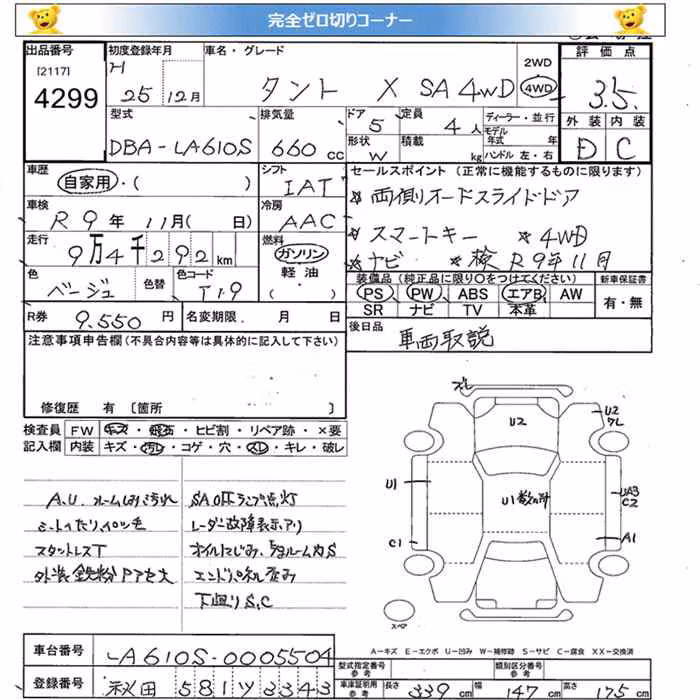 完全ゼロ切りコーナー
出品番号
[2117]
4299
初度登録年月
H 25 12月
車名・グレード
タント X SA 4WD
2WD
4WD
評価点
3.5
外装 内装
D C
型式
DBA-LA610S
排気量
660 cc
ドア
5
定員
4人
形状
W
積載
kg
ディーラー・並行
モデル
年式 年
ハンドル 左・右
車歴
自家用・( )
シフト
IAT
車検
R9年 11月( 日)
冷房
AAC
走行
9万4千292km
燃料
ガソリン
軽油
( )
色
ベージュ
色替
色コード
T19
R券 9,550円
名変期限 . 月 日
セールスポイント (正常に機能するものに限ります)
両側オードスライドドア
スマートキー 4WD
ナビ 検R9年11月
装備品 (純正品に限り○をつけてください)
PS PW ABS エアB AW
SR ナビ TV 本革
新車保証書
有・無
後日品
車両取説
注意事項申告欄(不具合内容等は具体的に記入して下さい)
修復歴 有 〔箇所 〕
検査員
記入欄
FW キズ・飛石・ヒビ割・リペア跡・×要
内装 キズ・汚レ・コゲ・穴・スレ・キレ・破レ
A.U. ルーム
シートへたり
スタットレスT
外装鉄粉
SA OFFランプ点灯
レーダー故障表示アリ
オイルにじみ、
エンドパネル歪み
下廻りS,C
U2
U2
U1
U1数ヶ所
UA3
C2
C1
A1
スペア
A-キズ E-エクボ U-凹み W-補修跡 S-サビ C-腐食 XX-交換済
車台番号
LA610S-0005504
登録番号
秋田 581ツ3343
型式指定番号
参考
類別区分番号
参考
車庫証明用
参考
長さ 339 cm 幅 147 cm 高さ 175 cm